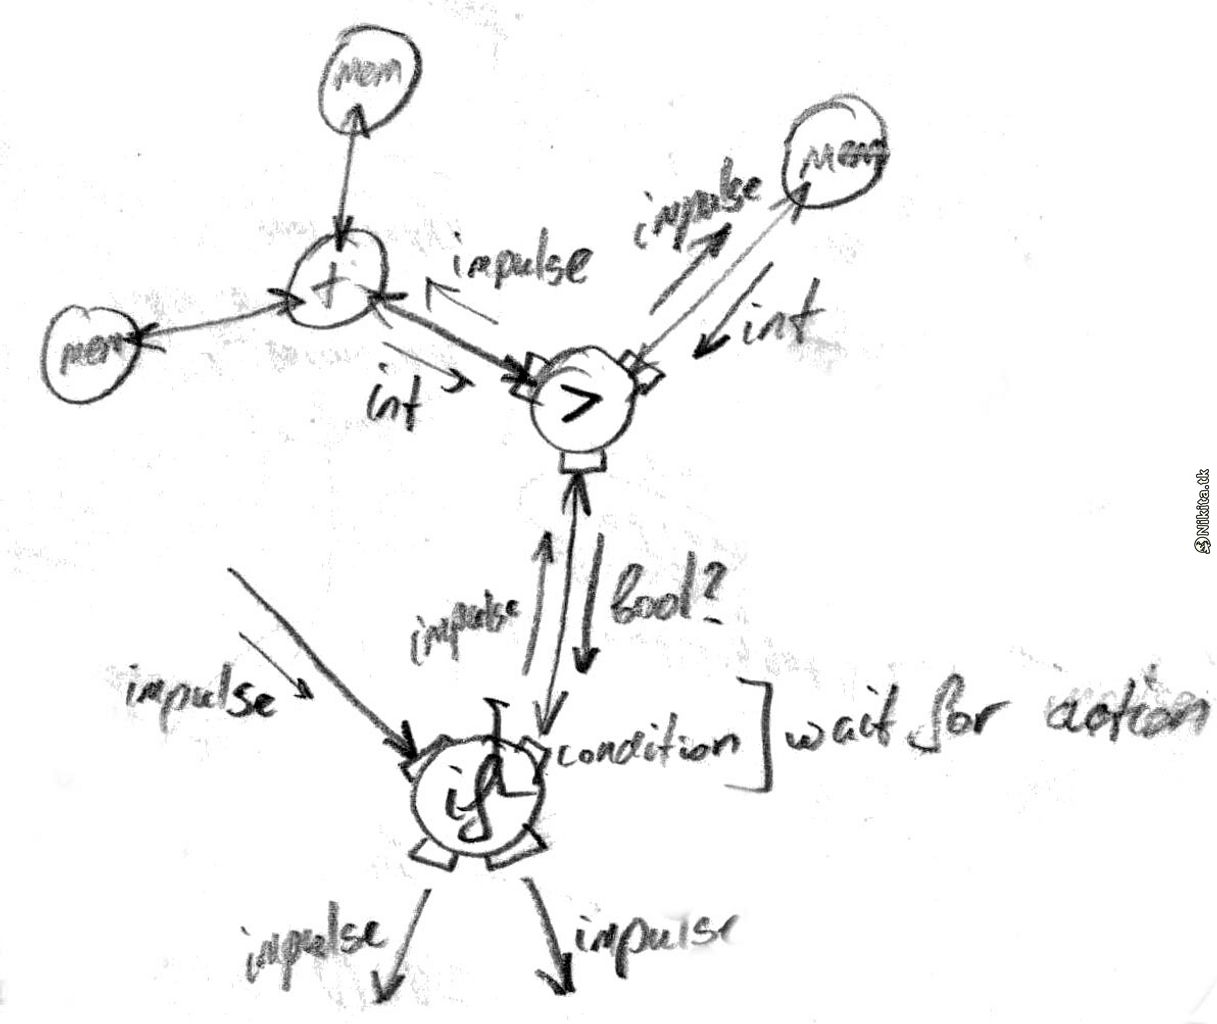 mem
mem
impulse
impulse
+
mem
int
int
>
impulse
bool?
impulse
condition ] wait for action
if
impulse
impulse
Nikita.tk